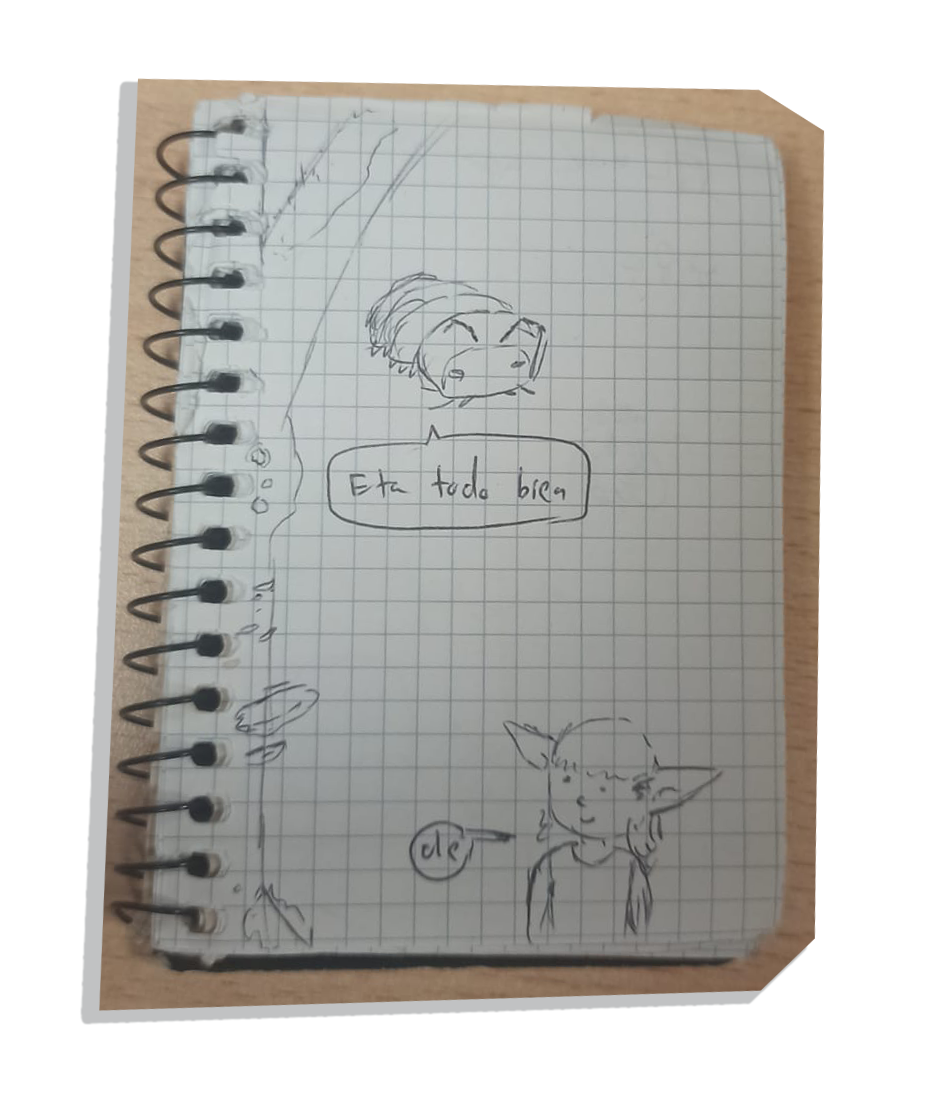 Eta todo bien
de